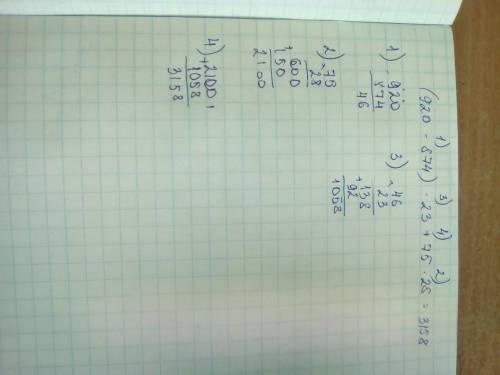 1) 3) 4) 2)
(920 - 874) · 23 + 75 · 28 = 3158
1) - 920
874
46
3) × 46
23
+ 138
92
1058
2) × 75
28
+ 600
150
2100
4) + 2100
1058
3158